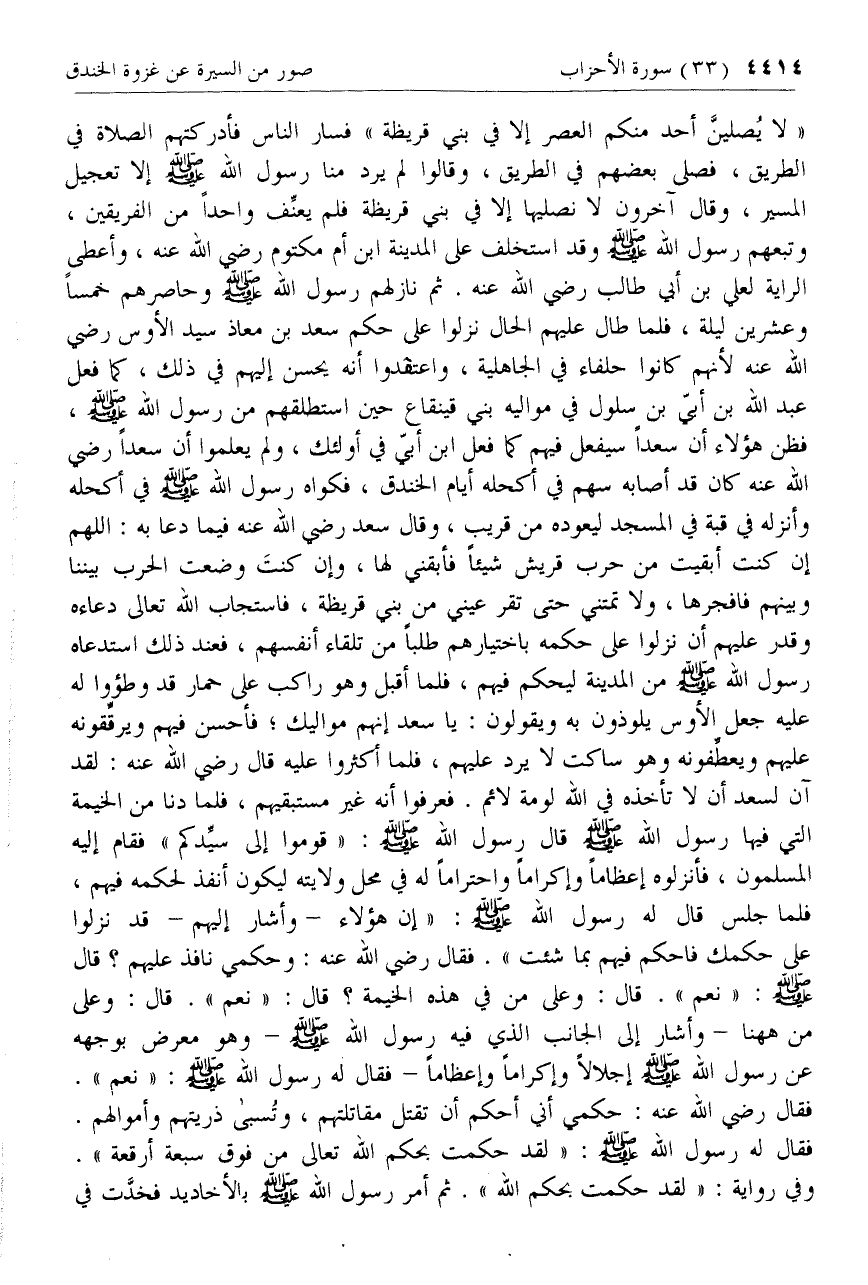 ٤٤١٤ (٣٣) سورة الأحزاب صور من السيرة عن غزوة الخندق
« لا يُصلينَّ أحد منكم العصر إلا في بني قريظة » فسار الناس فأدركتهم الصلاة في
الطريق ، فصلى بعضهم في الطريق ، وقالوا لم يرد منا رسول الله ﷺ إلا تعجيل
المسير ، وقال آخرون لا نصليها إلا في بني قريظة فلم يعنِّف واحداً من الفريقين ،
وتبعهم رسول الله ﷺ وقد استخلف على المدينة ابن أم مكتوم رضي الله عنه ، وأعطى
الراية لعلي بن أبي طالب رضي الله عنه . ثم نازلهم رسول الله ﷺ وحاصرهم خمساً
وعشرين ليلة ، فلما طال عليهم الحال نزلوا على حكم سعد بن معاذ سيد الأوس رضي
الله عنه لأنهم كانوا حلفاء في الجاهلية ، واعتقدوا أنه يحسن إليهم في ذلك ، كما فعل
عبد الله بن أبيّ بن سلول في مواليه بني قينقاع حين استطلقهم من رسول الله ﷺ ،
فظن هؤلاء أن سعداً سيفعل فيهم كما فعل ابن أبيّ في أولئك ، ولم يعلموا أن سعداً رضي
الله عنه كان قد أصابه سهم في أكحله أيام الخندق ، فكواه رسول الله ﷺ في أكحله
وأنزله في قبة في المسجد ليعوده من قريب ، وقال سعد رضي الله عنه فيما دعا به : اللهم
إن كنت أبقيت من حرب قريش شيئاً فأبقني لها ، وإن كنتَ وضعت الحرب بيننا
وبينهم فافجرها ، ولا تمتني حتى تقر عيني من بني قريظة ، فاستجاب الله تعالى دعاءه
وقدر عليهم أن نزلوا على حكمه باختيارهم طلباً من تلقاء أنفسهم ، فعند ذلك استدعاه
رسول الله ﷺ من المدينة ليحكم فيهم ، فلما أقبل وهو راكب على حمار قد وطؤوا له
عليه جعل الأوس يلوذون به ويقولون : يا سعد إنهم مواليك ؛ فأحسن فيهم ويرقِّقونه
عليهم ويعطِّفونه وهو ساكت لا يرد عليهم ، فلما أكثروا عليه قال رضي الله عنه : لقد
آن لسعد أن لا تأخذه في الله لومة لائم . فعرفوا أنه غير مستبقيهم ، فلما دنا من الخيمة
التي فيها رسول الله ﷺ قال رسول الله ﷺ : « قوموا إلى سيِّدكم » فقام إليه
المسلمون ، فأنزلوه إعظاماً وإكراماً واحتراماً له في محل ولايته ليكون أنفذ لحكمه فيهم ،
فلما جلس قال له رسول الله ﷺ : « إن هؤلاء – وأشار إليهم – قد نزلوا
على حكمك فاحكم فيهم بما شئت » . فقال رضي الله عنه : وحكمي نافذ عليهم ؟ قال
ﷺ : « نعم » . قال : وعلى من في هذه الخيمة ؟ قال : « نعم » . قال : وعلى
من ههنا – وأشار إلى الجانب الذي فيه رسول الله ﷺ – وهو معرض بوجهه
عن رسول الله ﷺ إجلالاً وإكراماً وإعظاماً – فقال له رسول الله ﷺ : « نعم » .
فقال رضي الله عنه : حكمي أني أحكم أن تقتل مقاتلتهم ، وتُسبىٰ ذريتهم وأموالهم .
فقال له رسول الله ﷺ : « لقد حكمت بحكم الله تعالى من فوق سبعة أرقعة » .
وفي رواية : « لقد حكمت بحكم الله » . ثم أمر رسول الله ﷺ بالأخاديد فخدَّت في